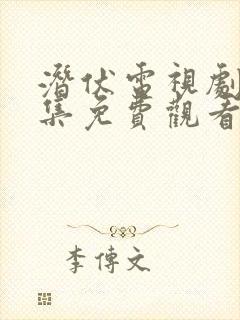 潛伏雷視劇
集免費觀看
李傳文